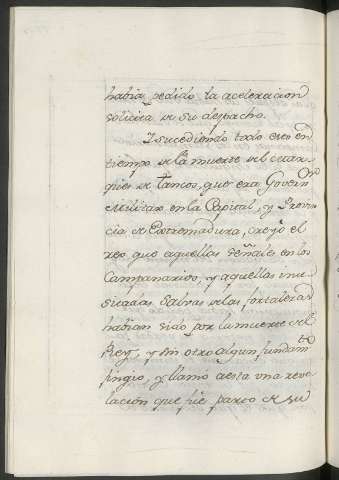 havia pedido la aceleracion
solicita de su despacho.
Y sucediendo todo esto en
tiempo de la muerte del Mar-
ques de Tancos, que era Govern.or
Militar en la Capital, y Provin
cia de Extremadura, creyò el
reo que aquellas señales en los
Campanarios, y aquellas inu-
sitadas Salvas de las fortalezas
habian sido por la muerte del
Rey, y sin otro algun fundam.to
fingio, y llamo a esta una reve
lacion que fue parto de su